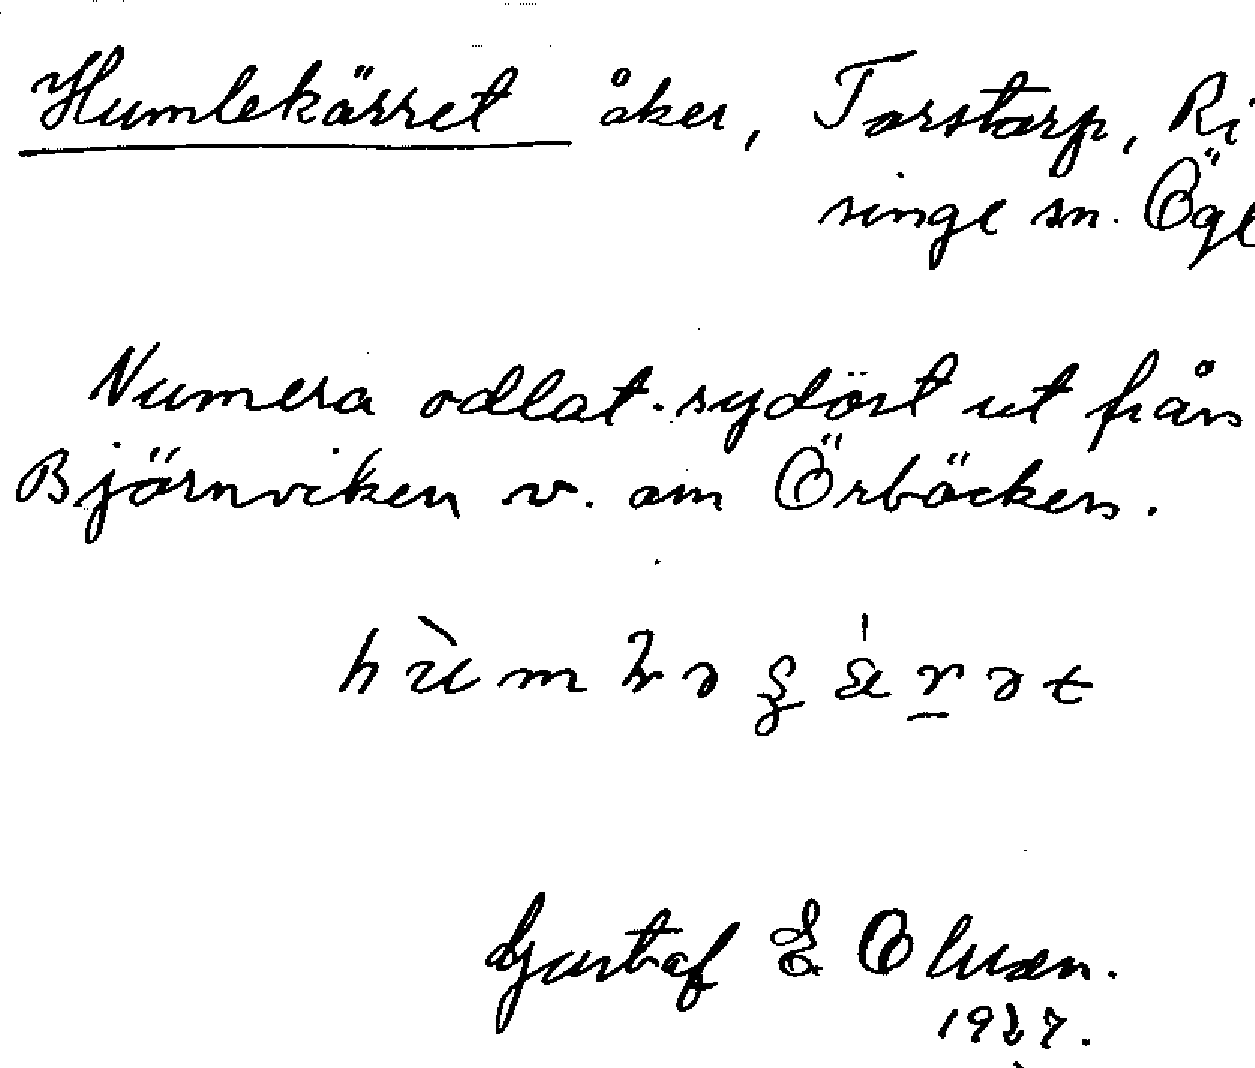 Humlekärret åker, Torstorp, Ri
singe sn. Ögl
Numera odlat. sydöst ut från
Björnviken v. om Örbäcken.
Gustaf E Olsson.
1927.